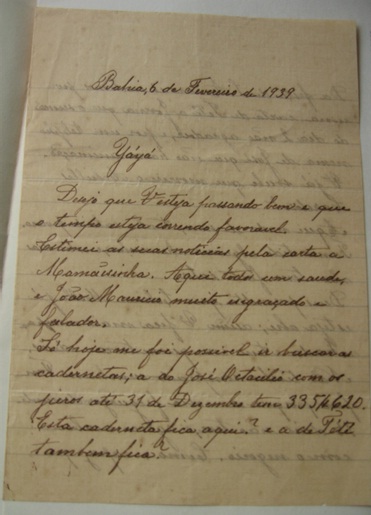 Bahia, 6 de Fevereiro de 1939
Yáyá
Desejo que V. esteja passando bem e que
o tempo esteja correndo favoravel.
Estimei as suas noticias pela carta a
Mamãesinha. Aqui todos com saude,
e João Mauricio muito engraçado e
falador.
Só hoje me foi possivel ir buscar as
cadernetas; a do José Octacilio com os
juros até 31 de Dezembro tem 335$620.
Esta caderneta fica aqui? e a de Tété
tambem fica?